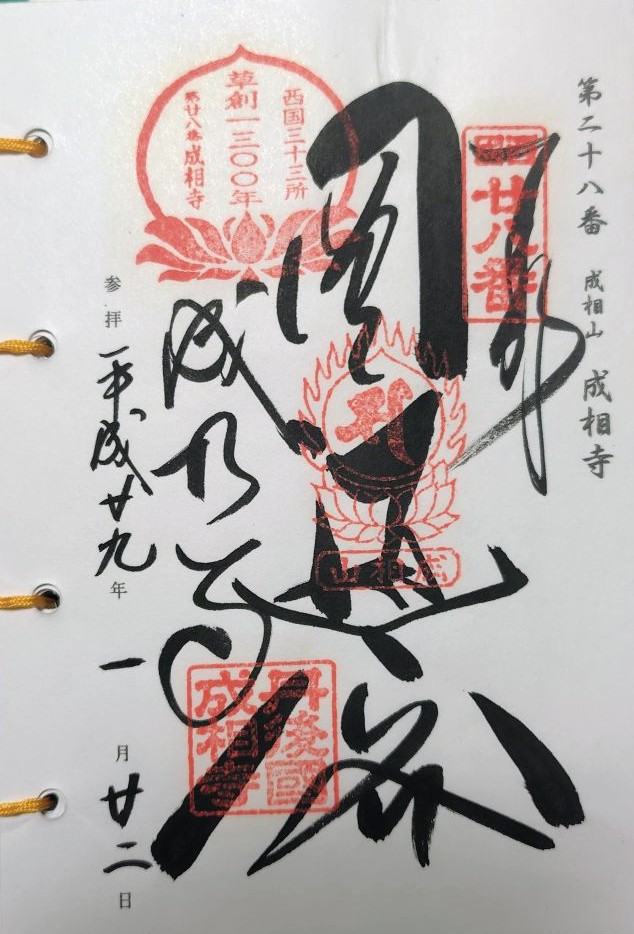 第二十八番 成相山 成相寺
廿八番
西国三十三所
草創一三〇〇年
第廿八番 成相寺
成相山
成相寺
丹後國
成相寺
参拝 平成廿九年 一月廿二日